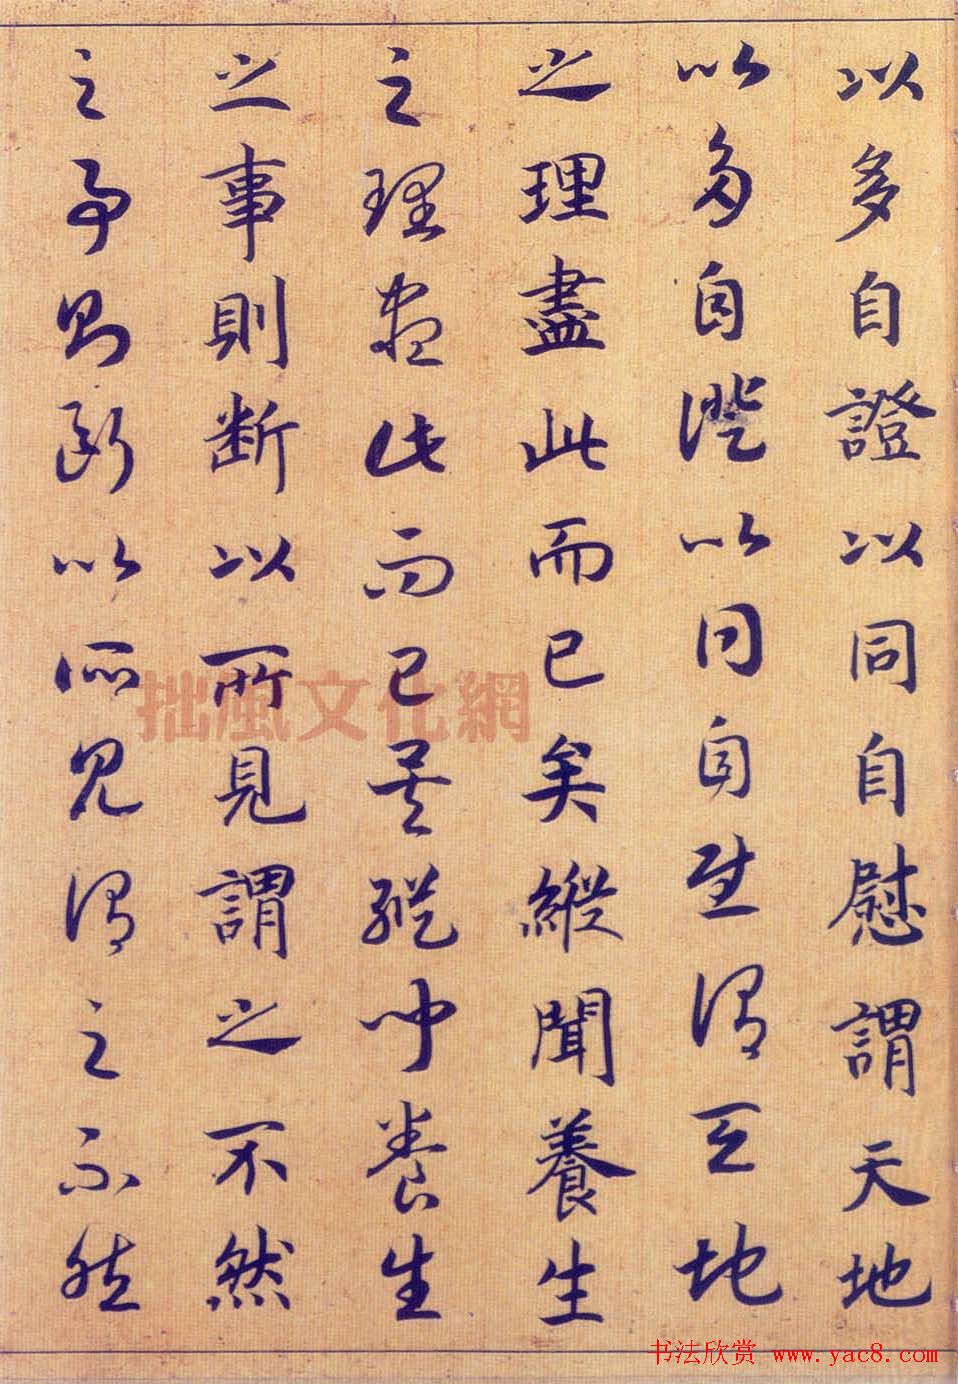 以多自證以同自慰謂天地
以多自證以同自慰謂天地
之理盡此而已矣縱聞養生
之理盡此而已矣縱聞養生
之事則斷以所見謂之不然
之事則斷以所見謂之不然
拙風文化網
书法欣赏 www.yac8.com